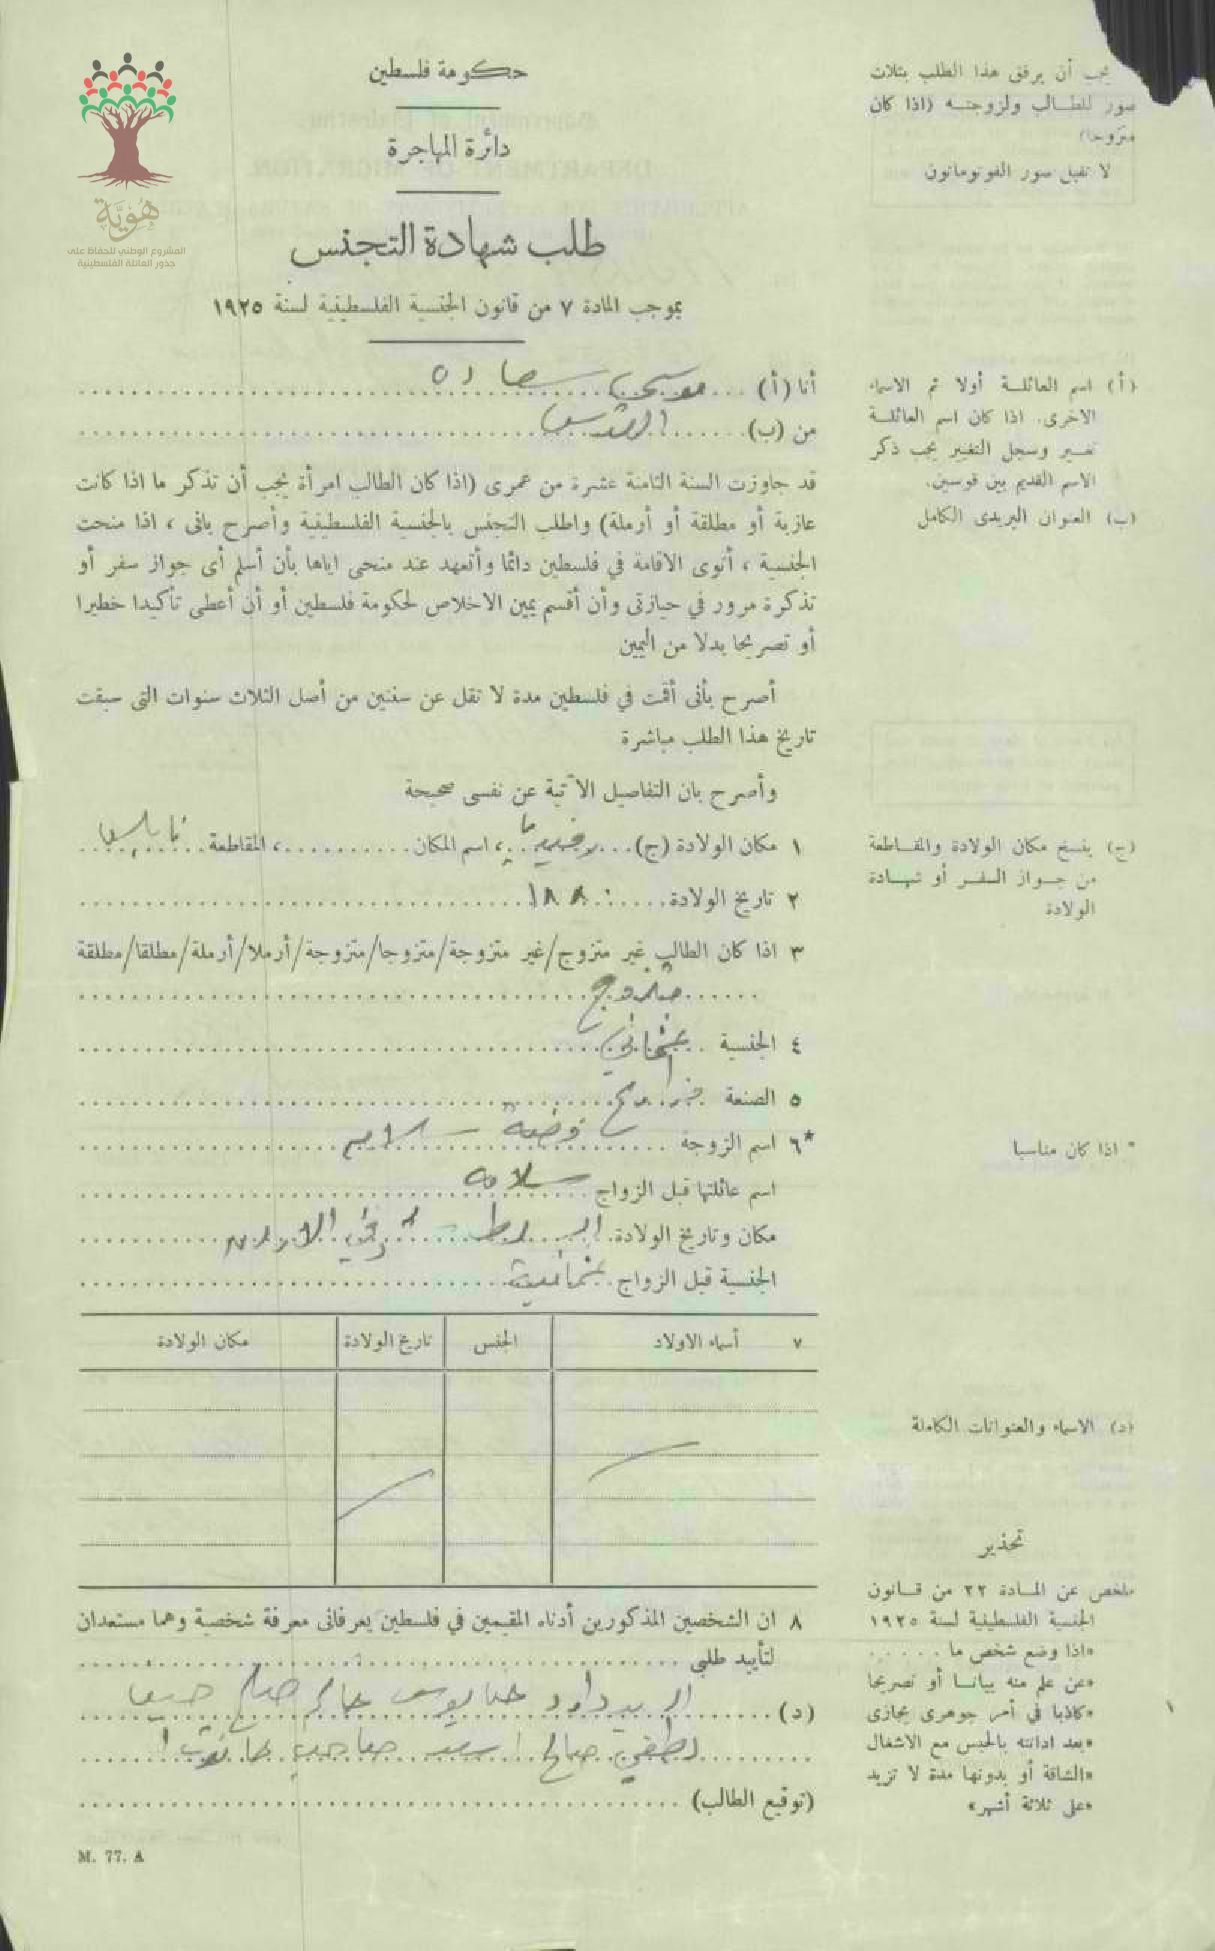 حكومة فلسطين
دائرة المهاجرة
طلب شهادة التجنس
بموجب المادة ٧ من قانون الجنسية الفلسطينية لسنة ١٩٢٥
هُويَّة
المشروع الوطني للحفاظ على
جذور العائلة الفلسطينية
يجب أن يرفق هذا الطلب بثلاث
صور للطالب ولزوجته (اذا كان
متزوجا)
لا تقبل صور الفوتوماتون
أنا (أ) موسى سعاده
من (ب) القدس
(أ) اسم العائلة أولا ثم الاسماء
الاخرى. اذا كان اسم العائلة
تغير وسجل التغيير يجب ذكر
الاسم القديم بين قوسين.
(ب) العنوان البريدى الكامل
قد جاوزت السنة الثامنة عشرة من عمرى (اذا كان الطالب امرأة يجب أن تذكر ما اذا كانت
عازبة أو مطلقة أو أرملة) واطلب التجنس بالجنسية الفلسطينية وأصرح بانى ، اذا منحت
الجنسية ، أنوى الاقامة في فلسطين دائما وأتعهد عند منحى اياها بأن أسلم أى جواز سفر أو
تذكرة مرور في حيازتى وأن أقسم يمين الاخلاص لحكومة فلسطين أو أن أعطى تأكيدا خطيرا
أو تصريحا بدلا من اليمين
أصرح بأنى أقمت في فلسطين مدة لا تقل عن سنتين من أصل الثلاث سنوات التى سبقت
تاريخ هذا الطلب مباشرة
وأصرح بان التفاصيل الآتية عن نفسى صحيحة
١ مكان الولادة (ج) رفيديا ، اسم المكان ، المقاطعة نابلس
(ج) ينسخ مكان الولادة والمقاطعة
من جواز السفر أو شهادة
الولادة
٢ تاريخ الولادة ١٨٨٠
٣ اذا كان الطالب غير متزوج/غير متزوجة/متزوجا/متزوجة/أرملا/أرملة/مطلقا/مطلقة
متزوج
٤ الجنسية عثماني
٥ الصنعة
*٦ اسم الزوجة فضة سلامه
* اذا كان مناسبا
اسم عائلتها قبل الزواج سلامه
مكان وتاريخ الولادة شرقي الاردن
الجنسية قبل الزواج عثمانية
٧ أسماء الاولاد
الجنس
تاريخ الولادة
مكان الولادة
(د) الاسماء والعنوانات الكاملة
تحذير
ملخص عن المادة ٢٢ من قانون
الجنسية الفلسطينية لسنة ١٩٢٥
«اذا وضع شخص ما . . . . . .
«عن علم منه بيانا أو تصريحا
«كاذبا في أمر جوهرى يجازى
«بعد ادانته بالحبس مع الاشغال
«الشاقة أو بدونها مدة لا تزيد
«على ثلاثة أشهر»
٨ ان الشخصين المذكورين أدناه المقيمين في فلسطين يعرفانى معرفة شخصية وهما مستعدان
لتأييد طلبى
(د) داود
لطفي صالح صاحب
(توقيع الطالب)
M. 77. A